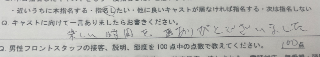 ・近いうちに本指名する・指名したい・他に良いキャストが居なければ指名する・次は指名しない
Q. キャストに向けて一言ありましたらお書きください。
楽しい時間を ありがとうございました
Q. 男性フロントスタッフの接客、説明、印象を100点中の点数で教えてください。 100点